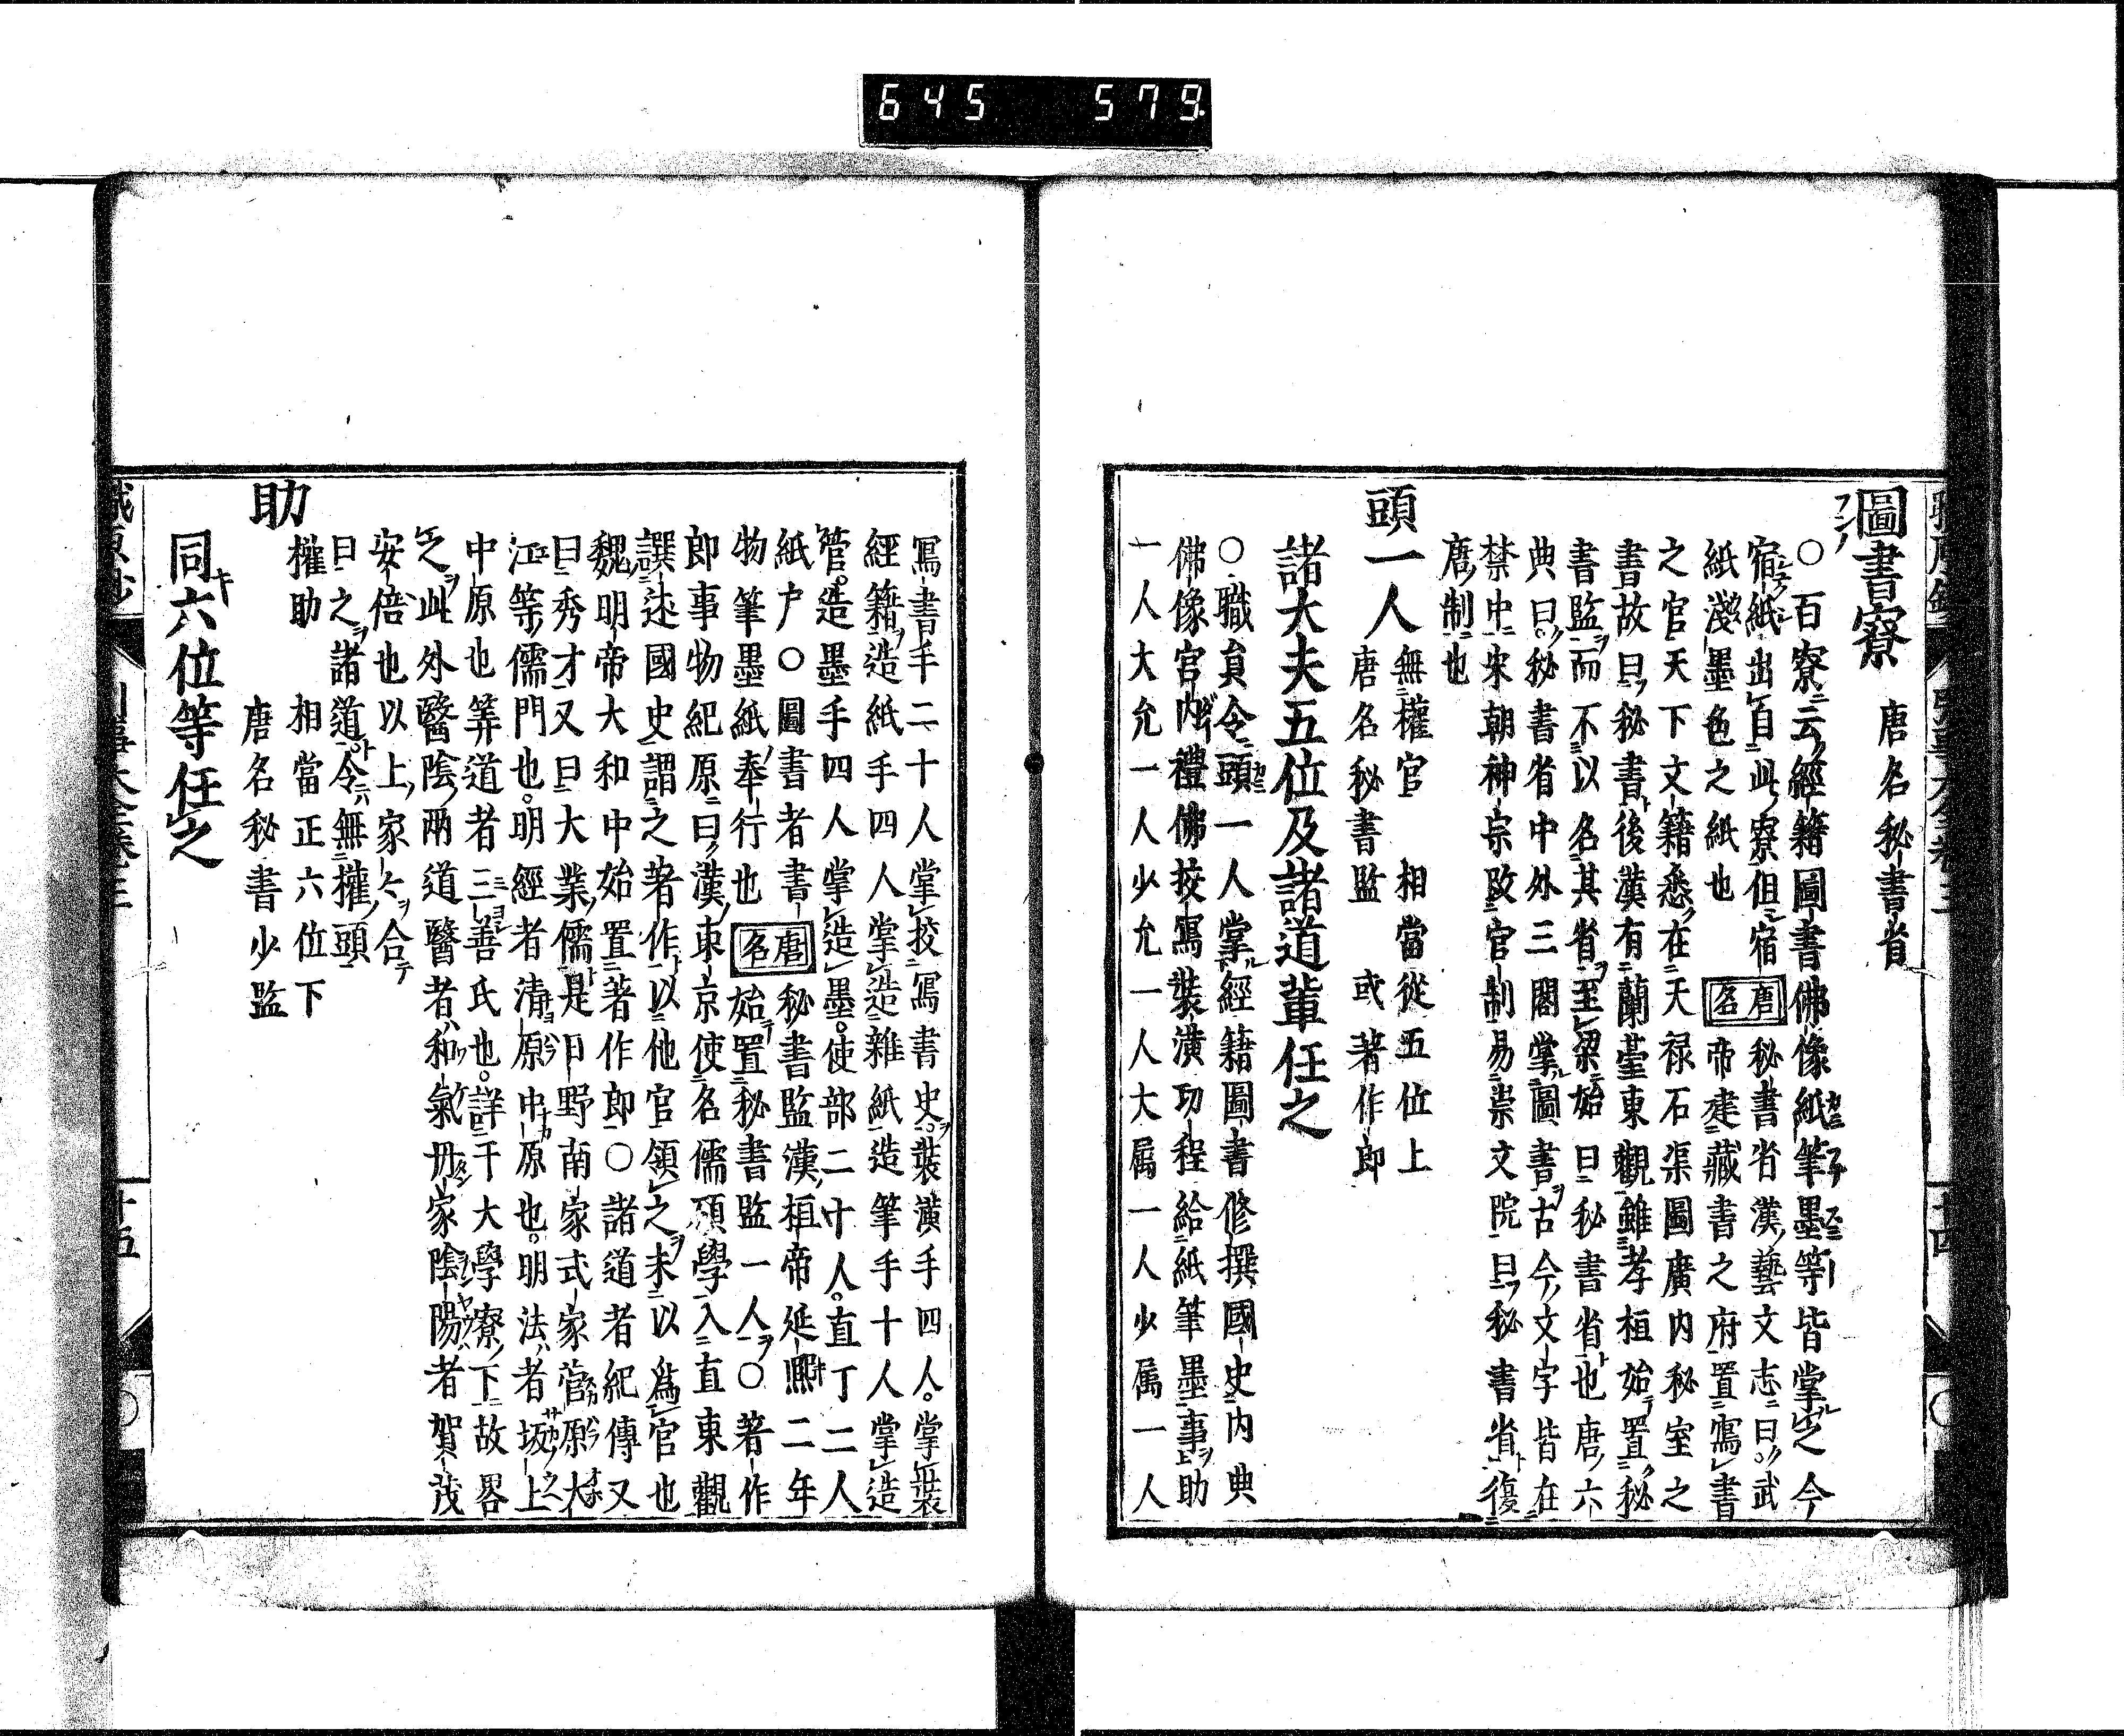 645 579
圖書寮 唐名秘書省
○百寮云經籍圖書佛像紙筆墨等皆掌之今
宿紙出自此寮但宿
紙淺墨色之紙也
唐名 秘書省漢藝文志曰武
帝建藏書之府置寫書
之官天下文籍悉在天禄石渠圖廣内秘室之
書故曰秘書後漢有蘭臺東觀雖孝桓始置秘
書監而不以名其省至梁始曰秘書省也唐六
典曰秘書省中外三閣掌圖書古今文字皆在
禁中宋朝神宗改官制易崇文院曰秘書省復
唐制也
頭一人 無權官 相當從五位上
唐名秘書監 或著作郎
諸大夫五位及諸道輩任之
○職員令頭一人掌經籍圖書修撰國史内典
佛像宮内禮佛挍寫裝潢功程給紙筆墨事助
一人大允一人少允一人大属一人少属一人
寫書手二十人掌挍寫書史裝潢手四人掌裝
經籍造紙手四人掌造雜紙造筆手十人掌造
管造墨手四人掌造墨使部二十人直丁二人
紙户○圖書者書
物筆墨紙奉行也
唐名 秘書監漢桓帝延熙二年
始置秘書監一人○著作
郎事物紀原曰漢東京使名儒碩學入直東觀
譔述國史謂之著作以他官領之未以爲官也
魏明帝大和中始置著作郎○諸道者紀傳又
曰秀才又曰大業儒是日野南家式家菅原大
江等儒門也明經者清原中原也明法者坂上
中原也筭道者三善氏也詳于大學寮下故畧
之此外醫陰兩道醫者和氣丹家陰陽者賀茂
安倍也以上家々合
曰之諸道令無權頭
助
權助 相當正六位下
唐名秘書少監
同六位等任之
十五